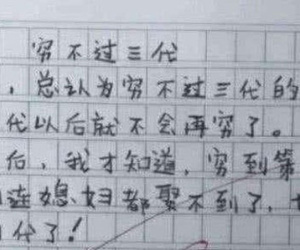 穷不过三代
，总认为穷不过三代的
代以后就不会再穷了。
后，我才知道，穷到第
连媳妇都娶不到了，
代了！